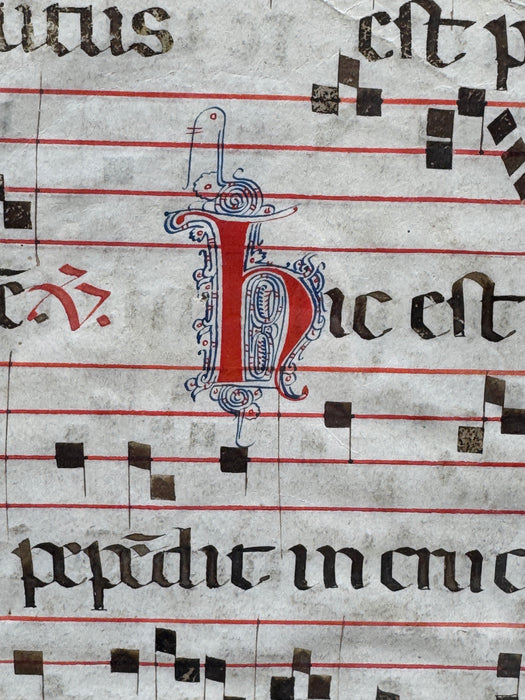 utus est p
ē. ℣. hic est
pepēdit in cruc